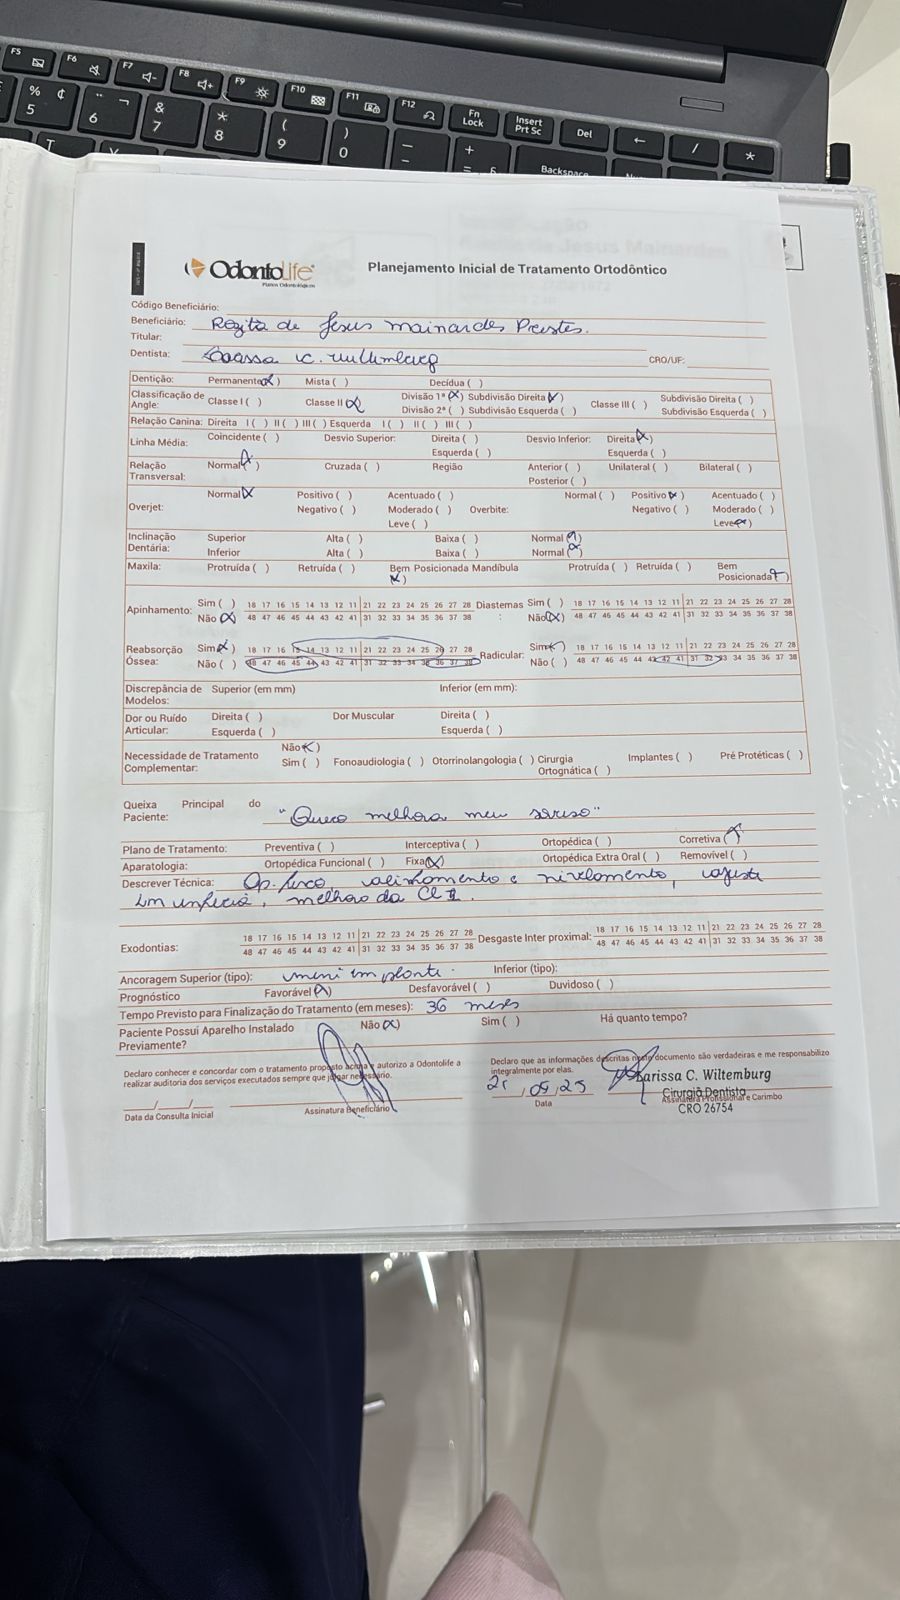 F5 F6 F7 F8 F9 F10 F11 F12 Fn Lock Insert Prt Sc Del ← / *
% 5 ¢ ¨ 6 ¬ & 7 * 8 ( 9 ) 0 _ - + = § Backspace
T Y
OdontoLife
Planos Odontológicos
Planejamento Inicial de Tratamento Ortodôntico
Código Beneficiário:
Beneficiário: Rozita de Jesus Mainardes Prestes.
Titular:
Dentista: CRO/UF:
Dentição: Permanente(x) Mista ( ) Decídua ( )
Classificação de Angle: Classe I ( ) Classe II (x) Divisão 1ª (x) Subdivisão Direita (x) Classe III ( ) Subdivisão Direita ( )
Divisão 2ª ( ) Subdivisão Esquerda ( ) Subdivisão Esquerda ( )
Relação Canina: Direita I ( ) II ( ) III ( ) Esquerda I ( ) II ( ) III ( )
Linha Média: Coincidente ( ) Desvio Superior: Direita ( ) Desvio Inferior: Direita (x)
Esquerda ( ) Esquerda ( )
Relação Transversal: Normal (x) Cruzada ( ) Região Anterior ( ) Unilateral ( ) Bilateral ( )
Posterior ( )
Overjet: Normal (x) Positivo ( ) Acentuado ( ) Overbite: Normal ( ) Positivo (x) Acentuado ( )
Negativo ( ) Moderado ( ) Negativo ( ) Moderado ( )
Leve ( ) Leve (x)
Inclinação Dentária: Superior Alta ( ) Baixa ( ) Normal (x)
Inferior Alta ( ) Baixa ( ) Normal (x)
Maxila: Protruída ( ) Retruída ( ) Bem Posicionada (x) Mandíbula Protruída ( ) Retruída ( ) Bem Posicionada (x)
Apinhamento: Sim ( ) 18 17 16 15 14 13 12 11 21 22 23 24 25 26 27 28 Diastemas : Sim ( ) 18 17 16 15 14 13 12 11 21 22 23 24 25 26 27 28
Não (x) 48 47 46 45 44 43 42 41 31 32 33 34 35 36 37 38 Não (x) 48 47 46 45 44 43 42 41 31 32 33 34 35 36 37 38
Reabsorção Óssea: Sim (x) 18 17 16 15 14 13 12 11 21 22 23 24 25 26 27 28 Radicular: Sim (x) 18 17 16 15 14 13 12 11 21 22 23 24 25 26 27 28
Não ( ) 48 47 46 45 44 43 42 41 31 32 33 34 35 36 37 38 Não ( ) 48 47 46 45 44 43 42 41 31 32 33 34 35 36 37 38
Discrepância de Modelos: Superior (em mm) Inferior (em mm):
Dor ou Ruído Articular: Direita ( ) Dor Muscular Direita ( )
Esquerda ( ) Esquerda ( )
Necessidade de Tratamento Complementar: Não (x)
Sim ( ) Fonoaudiologia ( ) Otorrinolangologia ( ) Cirurgia Ortognática ( ) Implantes ( ) Pré Protéticas ( )
Queixa Principal do Paciente: "Quero melhora meu sorriso"
Plano de Tratamento: Preventiva ( ) Interceptiva ( ) Ortopédica ( ) Corretiva (x)
Aparatologia: Ortopédica Funcional ( ) Fixa (x) Ortopédica Extra Oral ( ) Removível ( )
Descrever Técnica: Ap. fixo, alinhamento e nivelamento, ajuste
Lm inferior, melhora da Cl II.
Exodontias: 18 17 16 15 14 13 12 11 21 22 23 24 25 26 27 28 Desgaste Inter proximal: 18 17 16 15 14 13 12 11 21 22 23 24 25 26 27 28
48 47 46 45 44 43 42 41 31 32 33 34 35 36 37 38 48 47 46 45 44 43 42 41 31 32 33 34 35 36 37 38
Ancoragem Superior (tipo): mini implante. Inferior (tipo):
Prognóstico Favorável (x) Desfavorável ( ) Duvidoso ( )
Tempo Previsto para Finalização do Tratamento (em meses): 36 meses
Paciente Possui Aparelho Instalado Previamente? Não (x) Sim ( ) Há quanto tempo?
Declaro conhecer e concordar com o tratamento proposto acima e autorizo a Odontolife a
realizar auditoria dos serviços executados sempre que julgar necessário.
Declaro que as informações descritas neste documento são verdadeiras e me responsabilizo
integralmente por elas.
21/05/25
Larissa C. Wiltemburg
Cirurgiã Dentista
CRO 26754
___/___/___
Data da Consulta Inicial Assinatura Beneficiário Data Assinatura Profissional e Carimbo